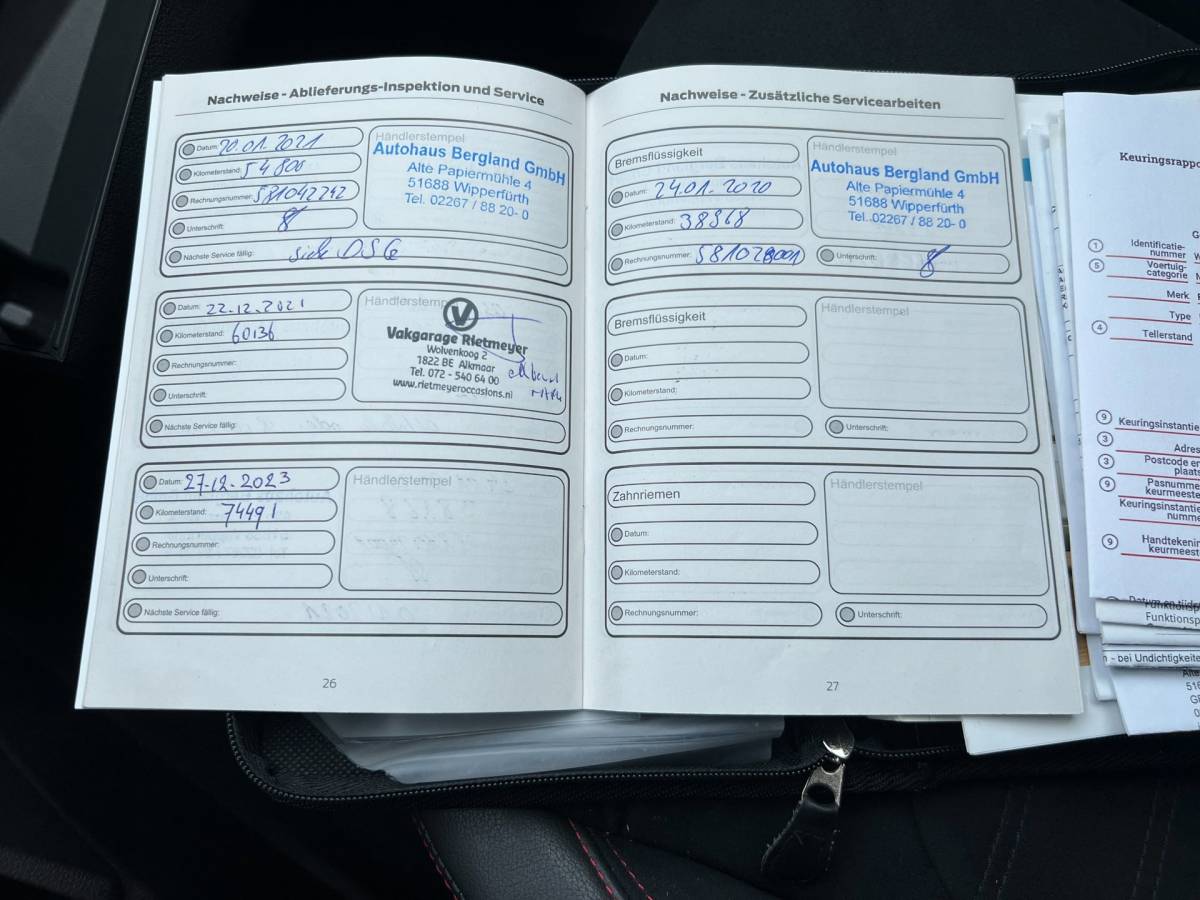 Nachweise - Ablieferungs-Inspektion und Service
Datum: 20.01.2021
Kilometerstand: 54800
Rechnungsnummer: 581042242
Unterschrift:
Nächste Service fällig: siehe DSG
Händlerstempel
Autohaus Bergland GmbH
Alte Papiermühle 4
51688 Wipperfürth
Tel. 02267 / 88 20- 0
Datum: 22-12-2021
Kilometerstand: 60136
Rechnungsnummer:
Unterschrift:
Nächste Service fällig:
Händlerstempel
Vakgarage Rietmeyer
Wolvenkoog 2
1822 BE Alkmaar
Tel. 072 - 540 64 00
www.rietmeyeroccasions.nl
Datum: 27-12-2023
Kilometerstand: 74491
Rechnungsnummer:
Unterschrift:
Nächste Service fällig:
Händlerstempel
26
Nachweise - Zusätzliche Servicearbeiten
Bremsflüssigkeit
Datum: 24.01.2020
Kilometerstand: 38368
Rechnungsnummer: 581028001
Händlerstempel
Autohaus Bergland GmbH
Alte Papiermühle 4
51688 Wipperfürth
Tel. 02267 / 88 20- 0
Unterschrift:
Bremsflüssigkeit
Datum:
Kilometerstand:
Rechnungsnummer:
Händlerstempel
Unterschrift:
Zahnriemen
Datum:
Kilometerstand:
Rechnungsnummer:
Händlerstempel
Unterschrift:
27
Keuringsrappo
1 Identificatie-
nummer
5 Voertuig-
categorie
Merk
Type
4 Tellerstand
9 Keuringsinstantie
3 Adres
3 Postcode en
plaats
9 Pasnumme
keurmeeste
Keuringsinstantie
numme
9 Handtekenin
keurmeest
Datum en tijds
Funktionsp
Funktionsp
n - bei Undichtigkeite
Alte
516
GE